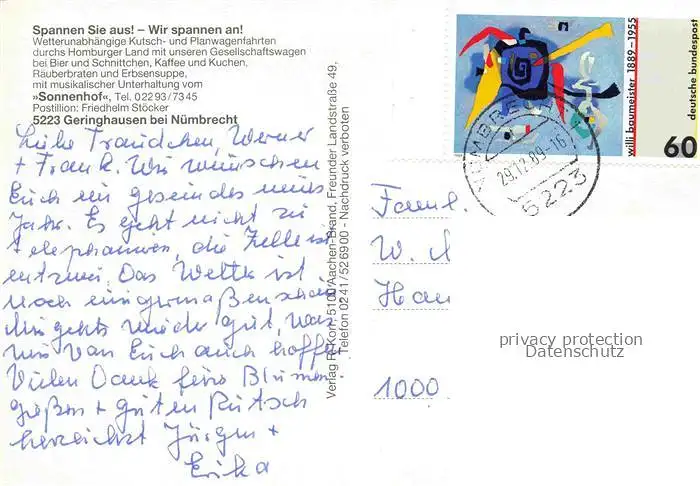 Spannen Sie aus! – Wir spannen an!
Wetterunabhängige Kutsch- und Planwagenfahrten
durchs Homburger Land mit unseren Gesellschaftswagen
bei Bier und Schnittchen, Kaffee und Kuchen,
Räuberbraten und Erbsensuppe,
mit musikalischer Unterhaltung vom
»Sonnenhof«, Tel. 02293/7345
Postillion: Friedhelm Stöcker
5223 Geringhausen bei Nümbrecht
Liebe Traudchen, Werner
+ Frank. Wir wünschen
Euch ein gesundes neues
Jahr. Es geht nicht zu
telephonieren, die Zelle ist
entzwei. Das Wetter ist
noch einigermaßen schön
Uns geht's wieder gut, was
wir von Euch auch hoffen
Vielen Dank fürs Blumen
gießen + guten Rutsch
herzlichst Jürgen +
Erika
Verlag R. Korr, 5100 Aachen-Brand, Freunder Landstraße 49,
Telefon 0241/526900 - Nachdruck verboten
willi baumeister 1889-1955
deutsche bundespost
60
NÜMBRECHT
29.12.89-16
5223
Fam.
W.
Han
1000
privacy protection
Datenschutz